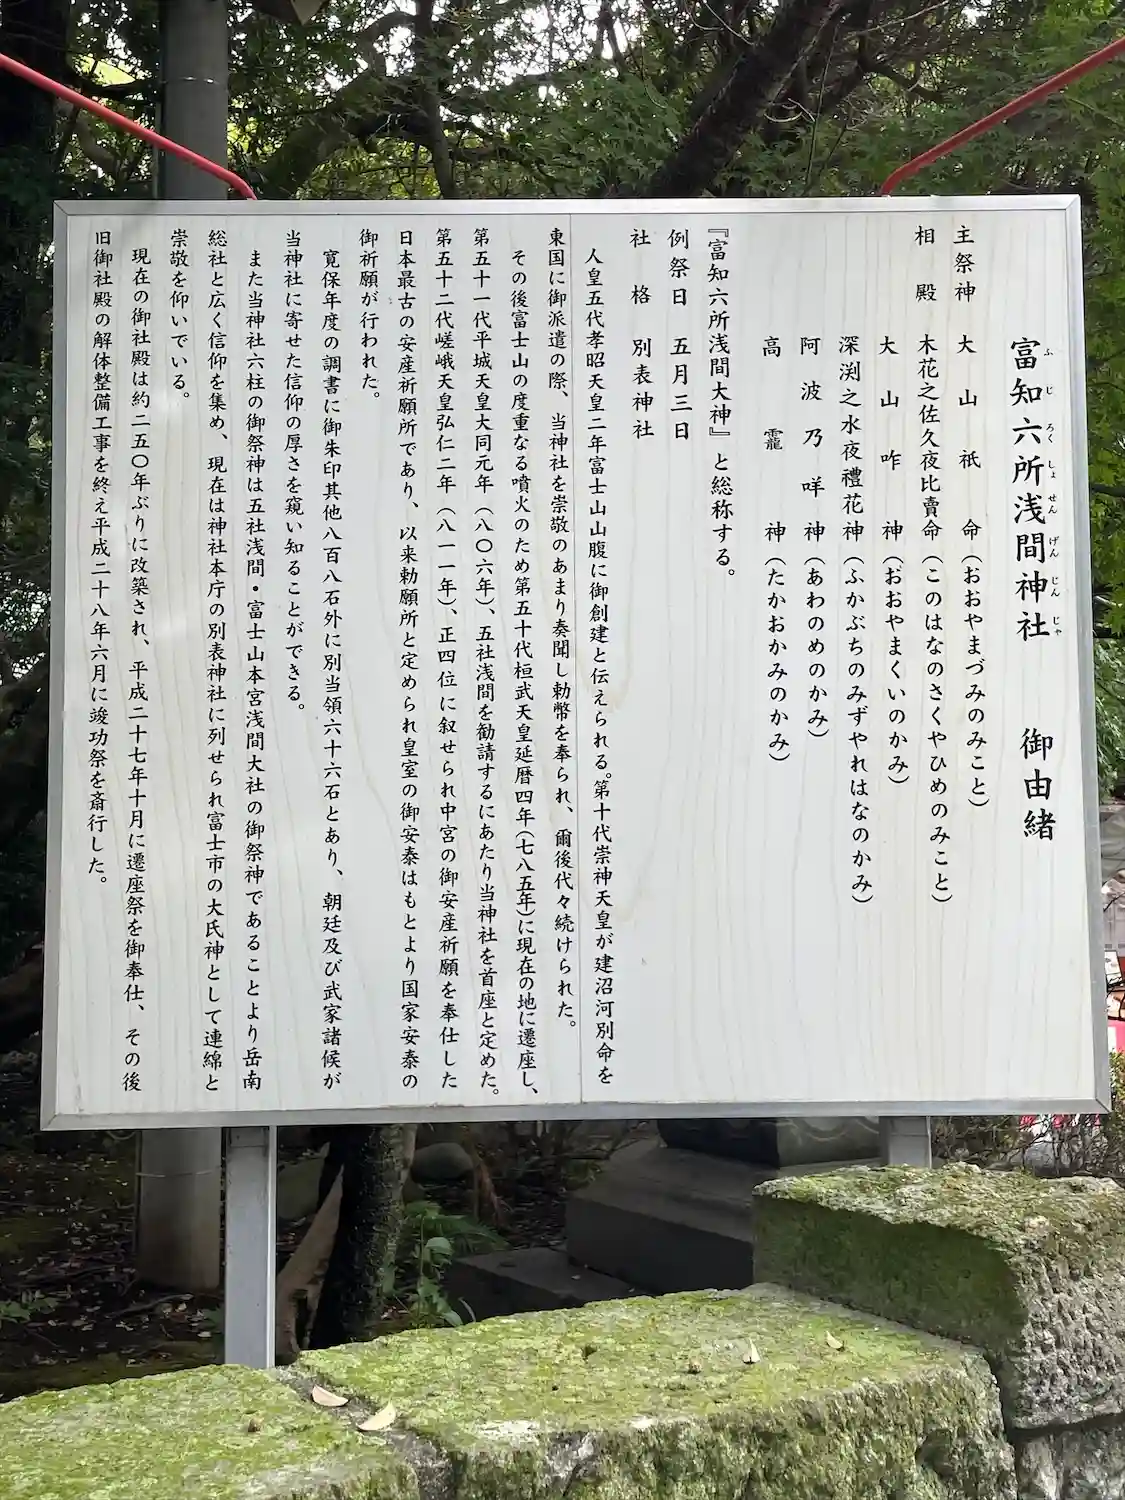 富知六所浅間神社　御由緒
ふじろくしょせんげんじんじゃ
主祭神　大山祇命（おおやまづみのみこと）
相殿　木花之佐久夜比賣命（このはなのさくやひめのみこと）
大山咋神（おおやまくいのかみ）
深渕之水夜禮花神（ふかぶちのみずやれはなのかみ）
阿波乃咩神（あわのめのかみ）
高龗神（たかおかみのかみ）
『富知六所浅間大神』と総称する。
例祭日　五月三日
社格　別表神社
人皇五代孝昭天皇二年富士山山腹に御創建と伝えられる。第十代崇神天皇が建沼河別命を
東国に御派遣の際、当神社を崇敬のあまり奏聞し勅幣を奉られ、爾後代々続けられた。
その後富士山の度重なる噴火のため第五十代桓武天皇延暦四年（七八五年）に現在の地に遷座し、
第五十一代平城天皇大同元年（八〇六年）、五社浅間を勧請するにあたり当神社を首座と定めた。
第五十二代嵯峨天皇弘仁二年（八一一年）、正四位に叙せられ中宮の御安産祈願を奉仕した
日本最古の安産祈願所であり、以来勅願所と定められ皇室の御安泰はもとより国家安泰の
御祈願が行われた。
寛保年度の調書に御朱印其他八百八石外に別当領六十六石とあり、朝廷及び武家諸候が
当神社に寄せた信仰の厚さを窺い知ることができる。
また当神社六柱の御祭神は五社浅間・富士山本宮浅間大社の御祭神であることより岳南
総社と広く信仰を集め、現在は神社本庁の別表神社に列せられ富士市の大氏神として連綿と
崇敬を仰いでいる。
現在の御社殿は約二五〇年ぶりに改築され、平成二十七年十月に遷座祭を御奉仕、その後
旧御社殿の解体整備工事を終え平成二十八年六月に竣功祭を斎行した。